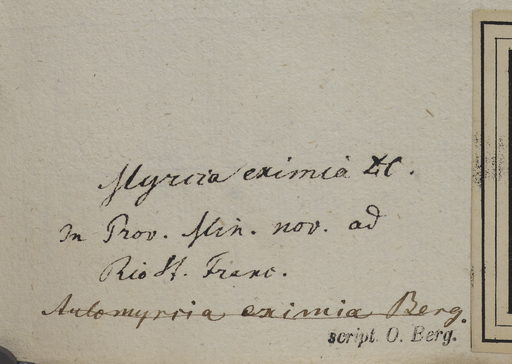 Myrcia eximia DC.
In Prov. Min. nov. ad
Rio St. Franc.
Aulomyrcia eximia Berg.
script. O. Berg.